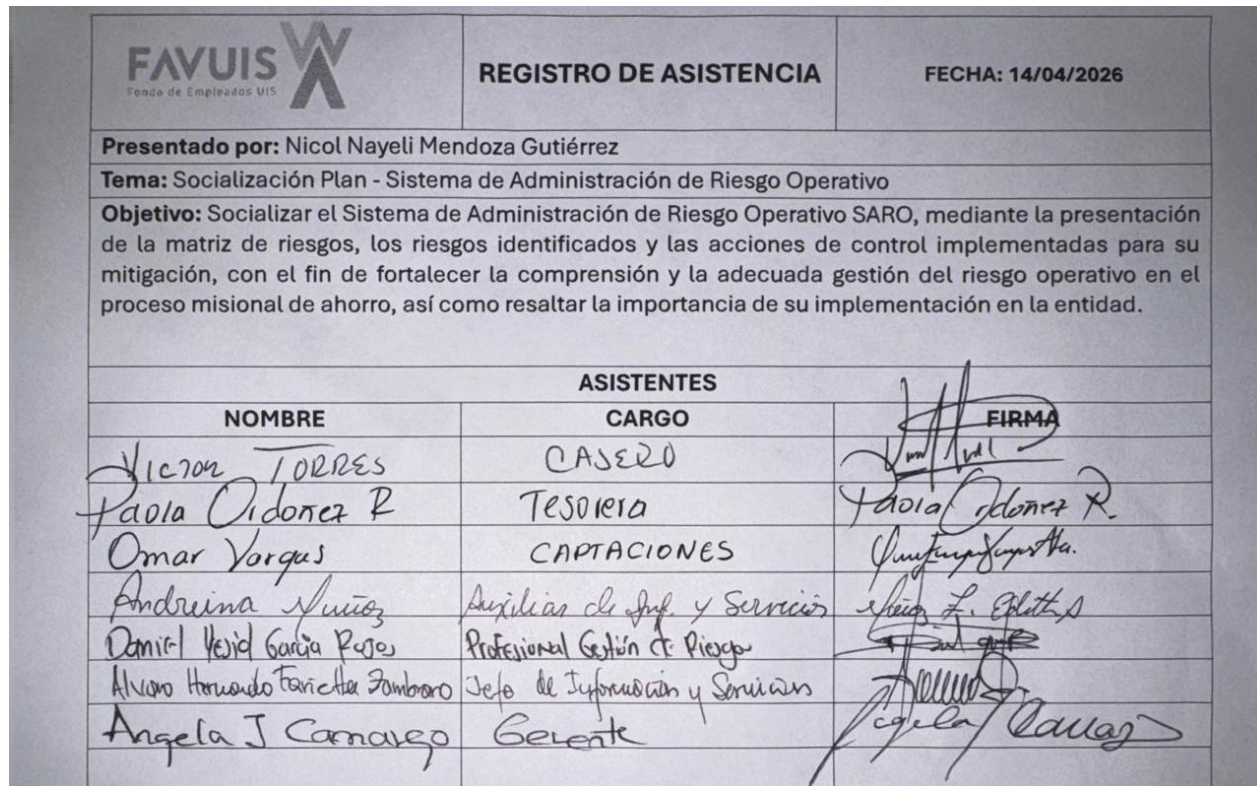 FAVUIS
Fondo de Empleados UIS
REGISTRO DE ASISTENCIA
FECHA: 14/04/2026
Presentado por: Nicol Nayeli Mendoza Gutiérrez
Tema: Socialización Plan - Sistema de Administración de Riesgo Operativo
Objetivo: Socializar el Sistema de Administración de Riesgo Operativo SARO, mediante la presentación
de la matriz de riesgos, los riesgos identificados y las acciones de control implementadas para su
mitigación, con el fin de fortalecer la comprensión y la adecuada gestión del riesgo operativo en el
proceso misional de ahorro, así como resaltar la importancia de su implementación en la entidad.
ASISTENTES
NOMBRE CARGO FIRMA
VICTOR TORRES CAJERO
Paola Ordoñez R Tesorera Paola Ordoñez R.
Omar Vargas CAPTACIONES
Andreina Muñoz Auxiliar de Inf. y Servicios
Daniel Yesid García Rojas Profesional Gestión de Riesgo
Alvaro Hernando Zambrano Jefe de Información y Servicios
Angela J Camargo Gerente Angela